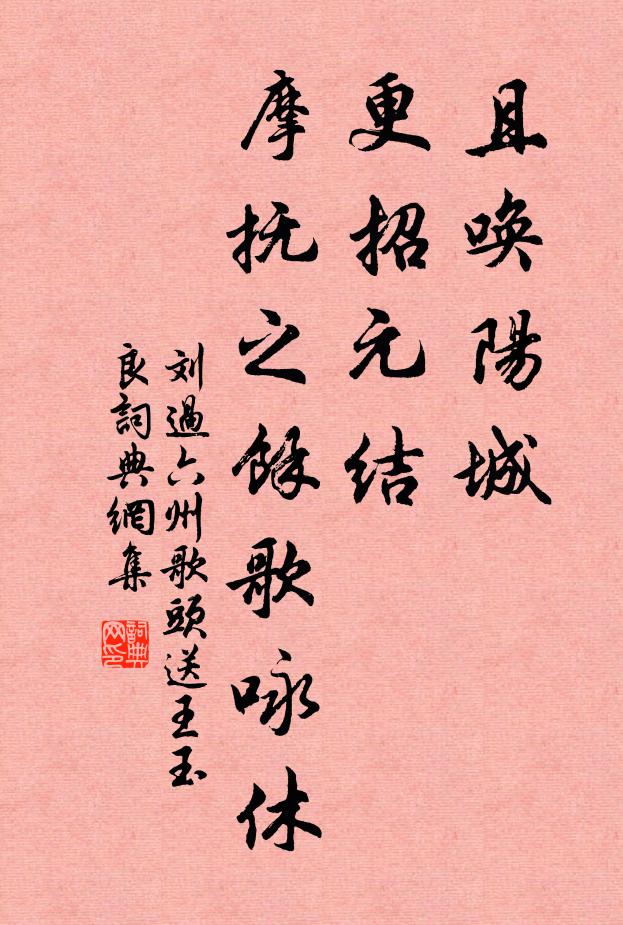 且唤陽城
更招元结
摩抚之餘歌咏休
刘過六州歌頭送王玉
良詞典網集
詞典
网印